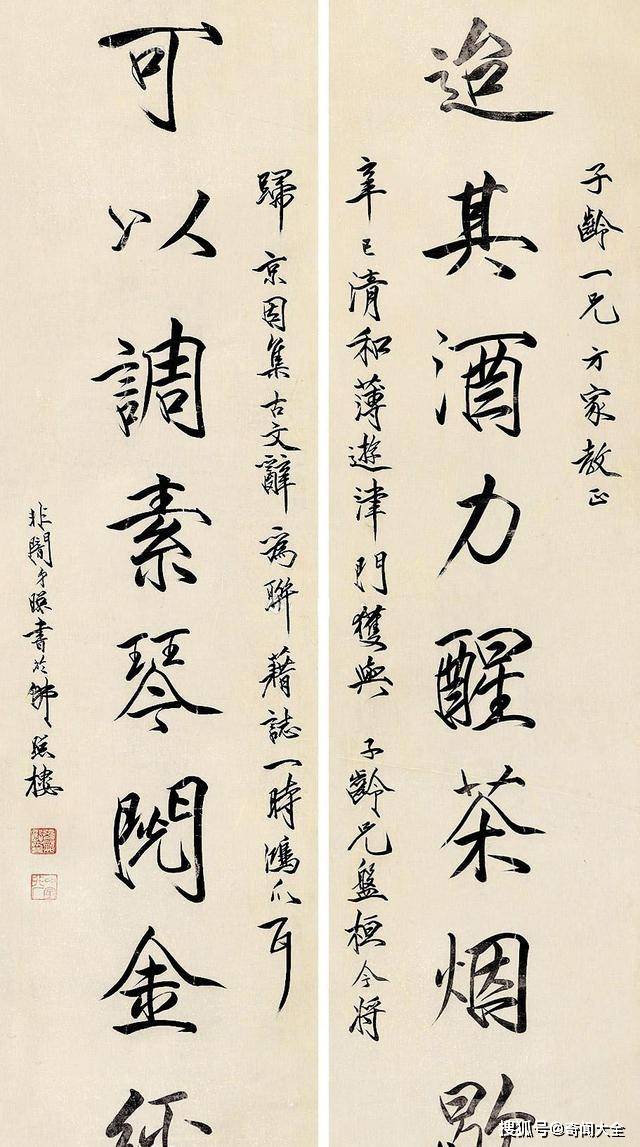 子齡一兄方家教正
迨其酒力醒茶烟歇
辛巳清和薄遊津門獲與 子齡兄盤桓今將
歸京因集古文辭爲聯藉誌一時鴻爪耳
可以調素琴閲金經
非闇弟照書於 照樓
搜狐号@奇闻大全